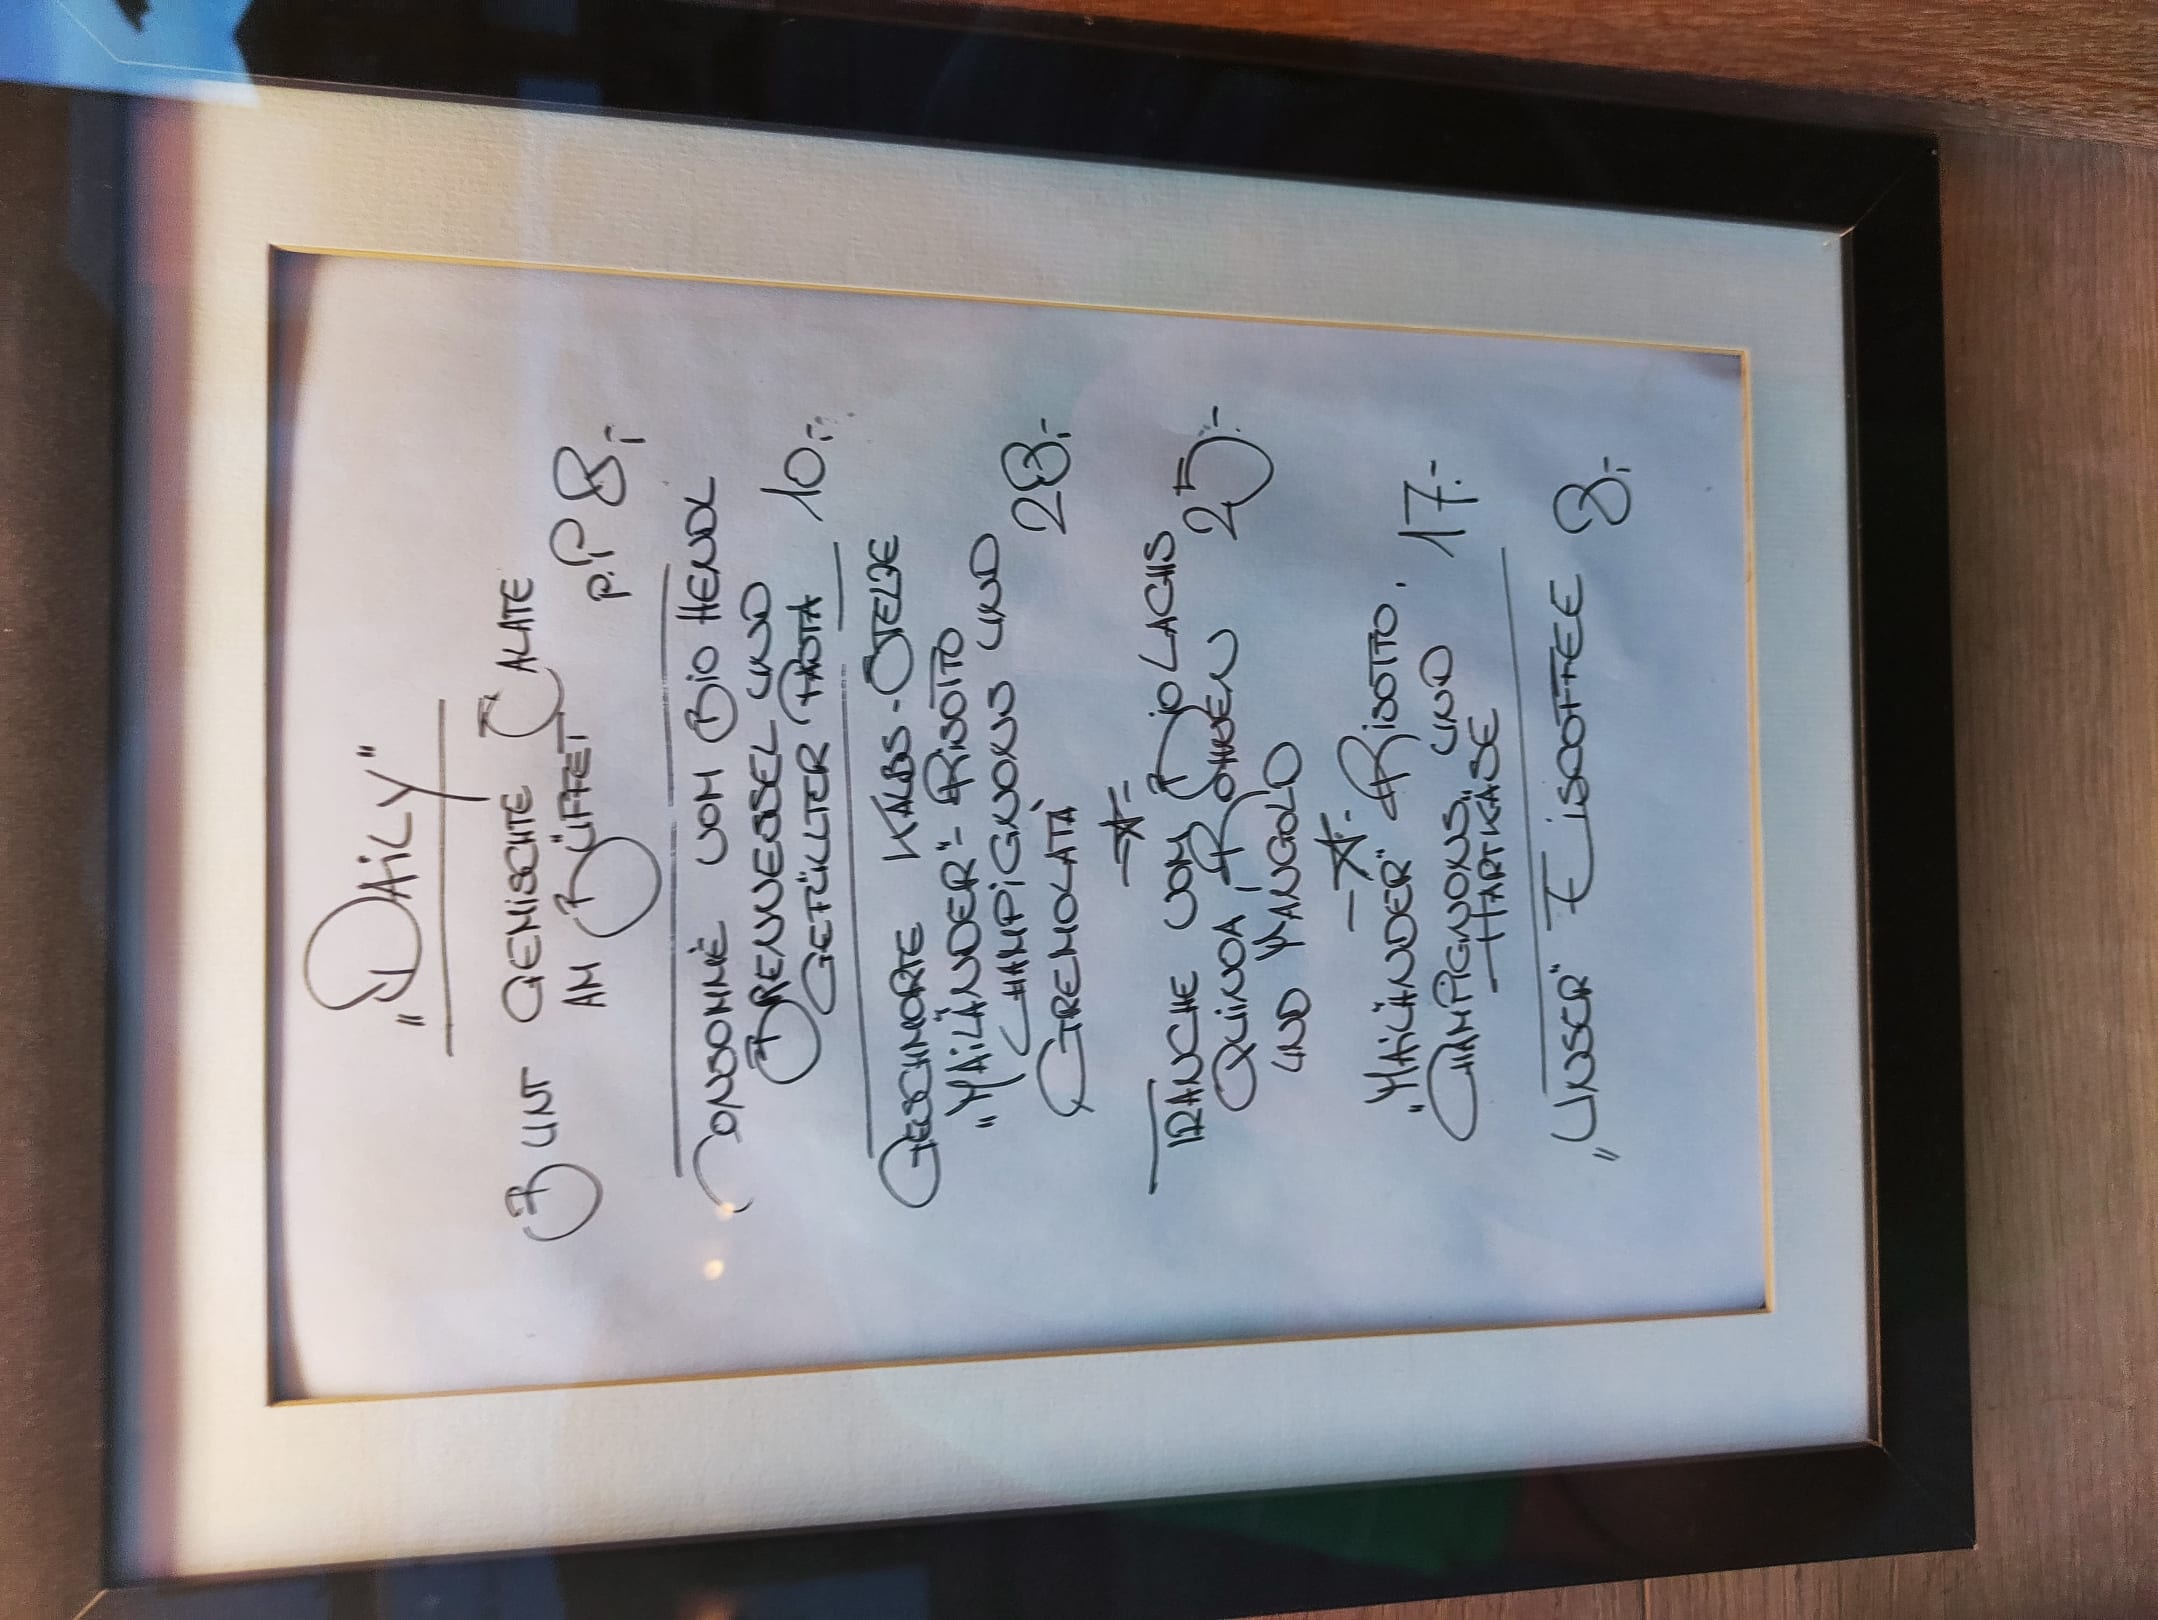 "DAILY"
BUNT GEMISCHTE SALATE
AM BÜFFET
p.P 8,-
CONSOMMÈ VOM BIO HENDL
BRENNESSEL UND
GEFÜLLTER PASTA 10,-
GESCHMORTE KALBS-STELZE
"MAILÄNDER"-RISOTTO
CHAMPIGNONS UND
GREMOLATÀ 28,-
-☆-
TRANCHE VOM BIOLACHS
QUINOA, ROHNEN 25,-
UND MANGOLD
-☆-
"MAILÄNDER" RISOTTO.
CHAMPIGNONS, UND 17,-
HARTKÄSE
"UNSER" EISCOFFEE 8,-